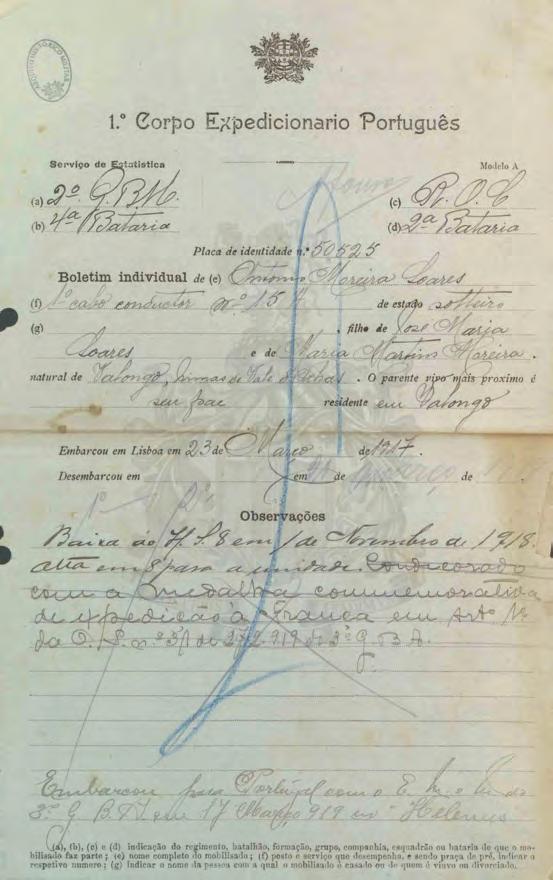 ARQUIVO HISTÓRICO MILITAR
1.º Corpo Expedicionario Português
Serviço de Estatistica
Modelo A
(a) 2º. G.B.M. (c) R.O.C
(b) 4ª Bataria (d) 2ª Bataria
Placa de identidade n.º 50525
Boletim individual de (e) Antonio Moreira Soares
(f) 1º cabo conductor nº 157 de estado solteiro
(g) , filho de José Maria
Soares e de Maria Martins Moreira.
natural de Valongo, . O parente vivo mais proximo é
seu pae residente em Valongo
Embarcou em Lisboa em 23 de Março de 1917.
Desembarcou em em de de
1º 2º
Observações
Baixa ao H.S.8 em 1 de Novembro de 1918.
alta em 8 para a unidade. Condecorado
com a medalha commemorativa
da expedição à França em Artº
da O.S. nº 51 de 919 do 3º G.B.A.
Embarcou para Portugal com o E. M. e M. do
3º G.B.A. em 17 Março 919 no "Helenus"
(a), (b), (c) e (d) indicação do regimento, batalhão, formação, grupo, companhia, esquadrão ou bataria de que o mo-
bilisado faz parte; (e) nome completo do mobilisado; (f) posto e serviço que desempenha, e sendo praça de pré, indicar o
respetivo numero; (g) Indicar o nome da pessoa com a qual o mobilisado é casado ou de quem é viuvo ou divorciado.